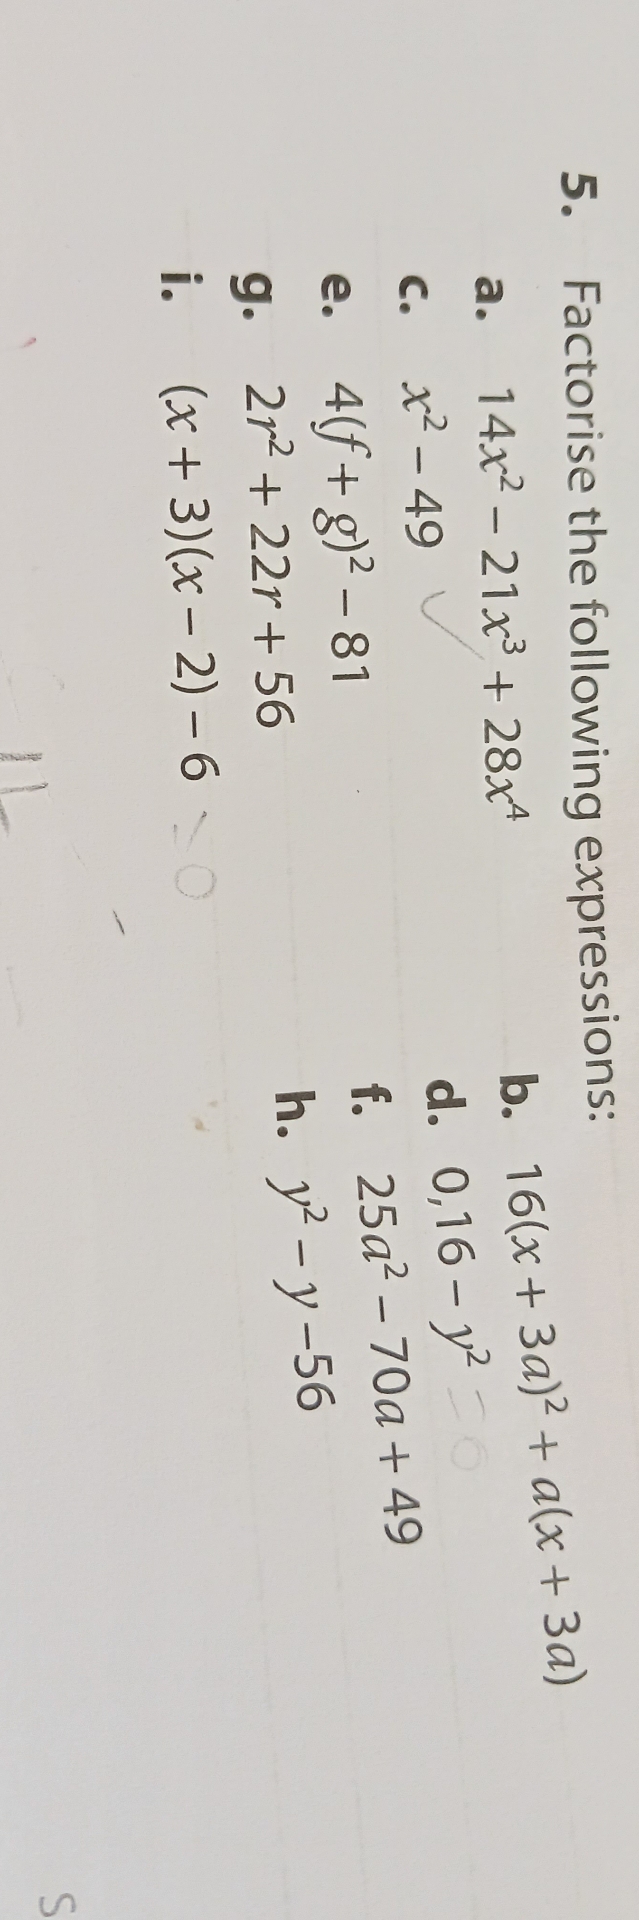 5. Factorise the following expressions:
a. 14x² – 21x³ + 28x⁴ b. 16(x + 3a)² + a(x + 3a)
c. x² – 49 ✓ d. 0,16 – y² = 0
e. 4(f + g)² – 81 f. 25a² – 70a + 49
g. 2r² + 22r + 56 h. y² – y –56
i. (x + 3)(x – 2) – 6 = 0